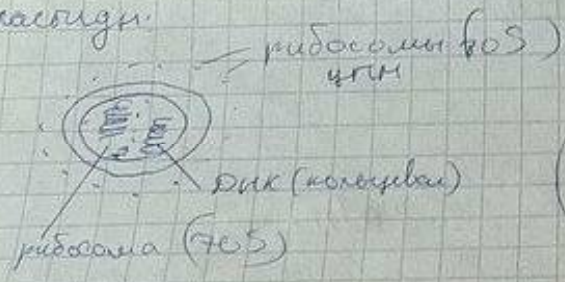 ластиды:
рибосомы (80S)
ДНК (кольцевая)
рибосома (70S)